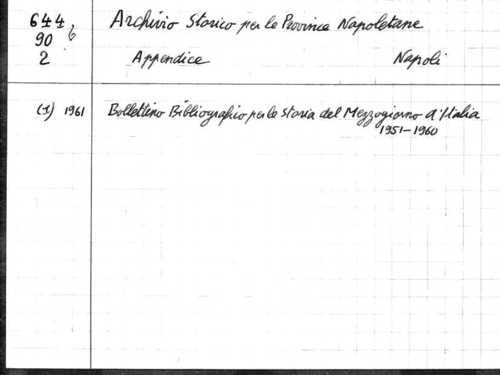 644 Archivio Storico per le Province Napoletane
90 6
2 Appendice Napoli
(1) 1961 Bollettino Bibliografico per le storia del Mezzogiorno d'Italia
1951-1960